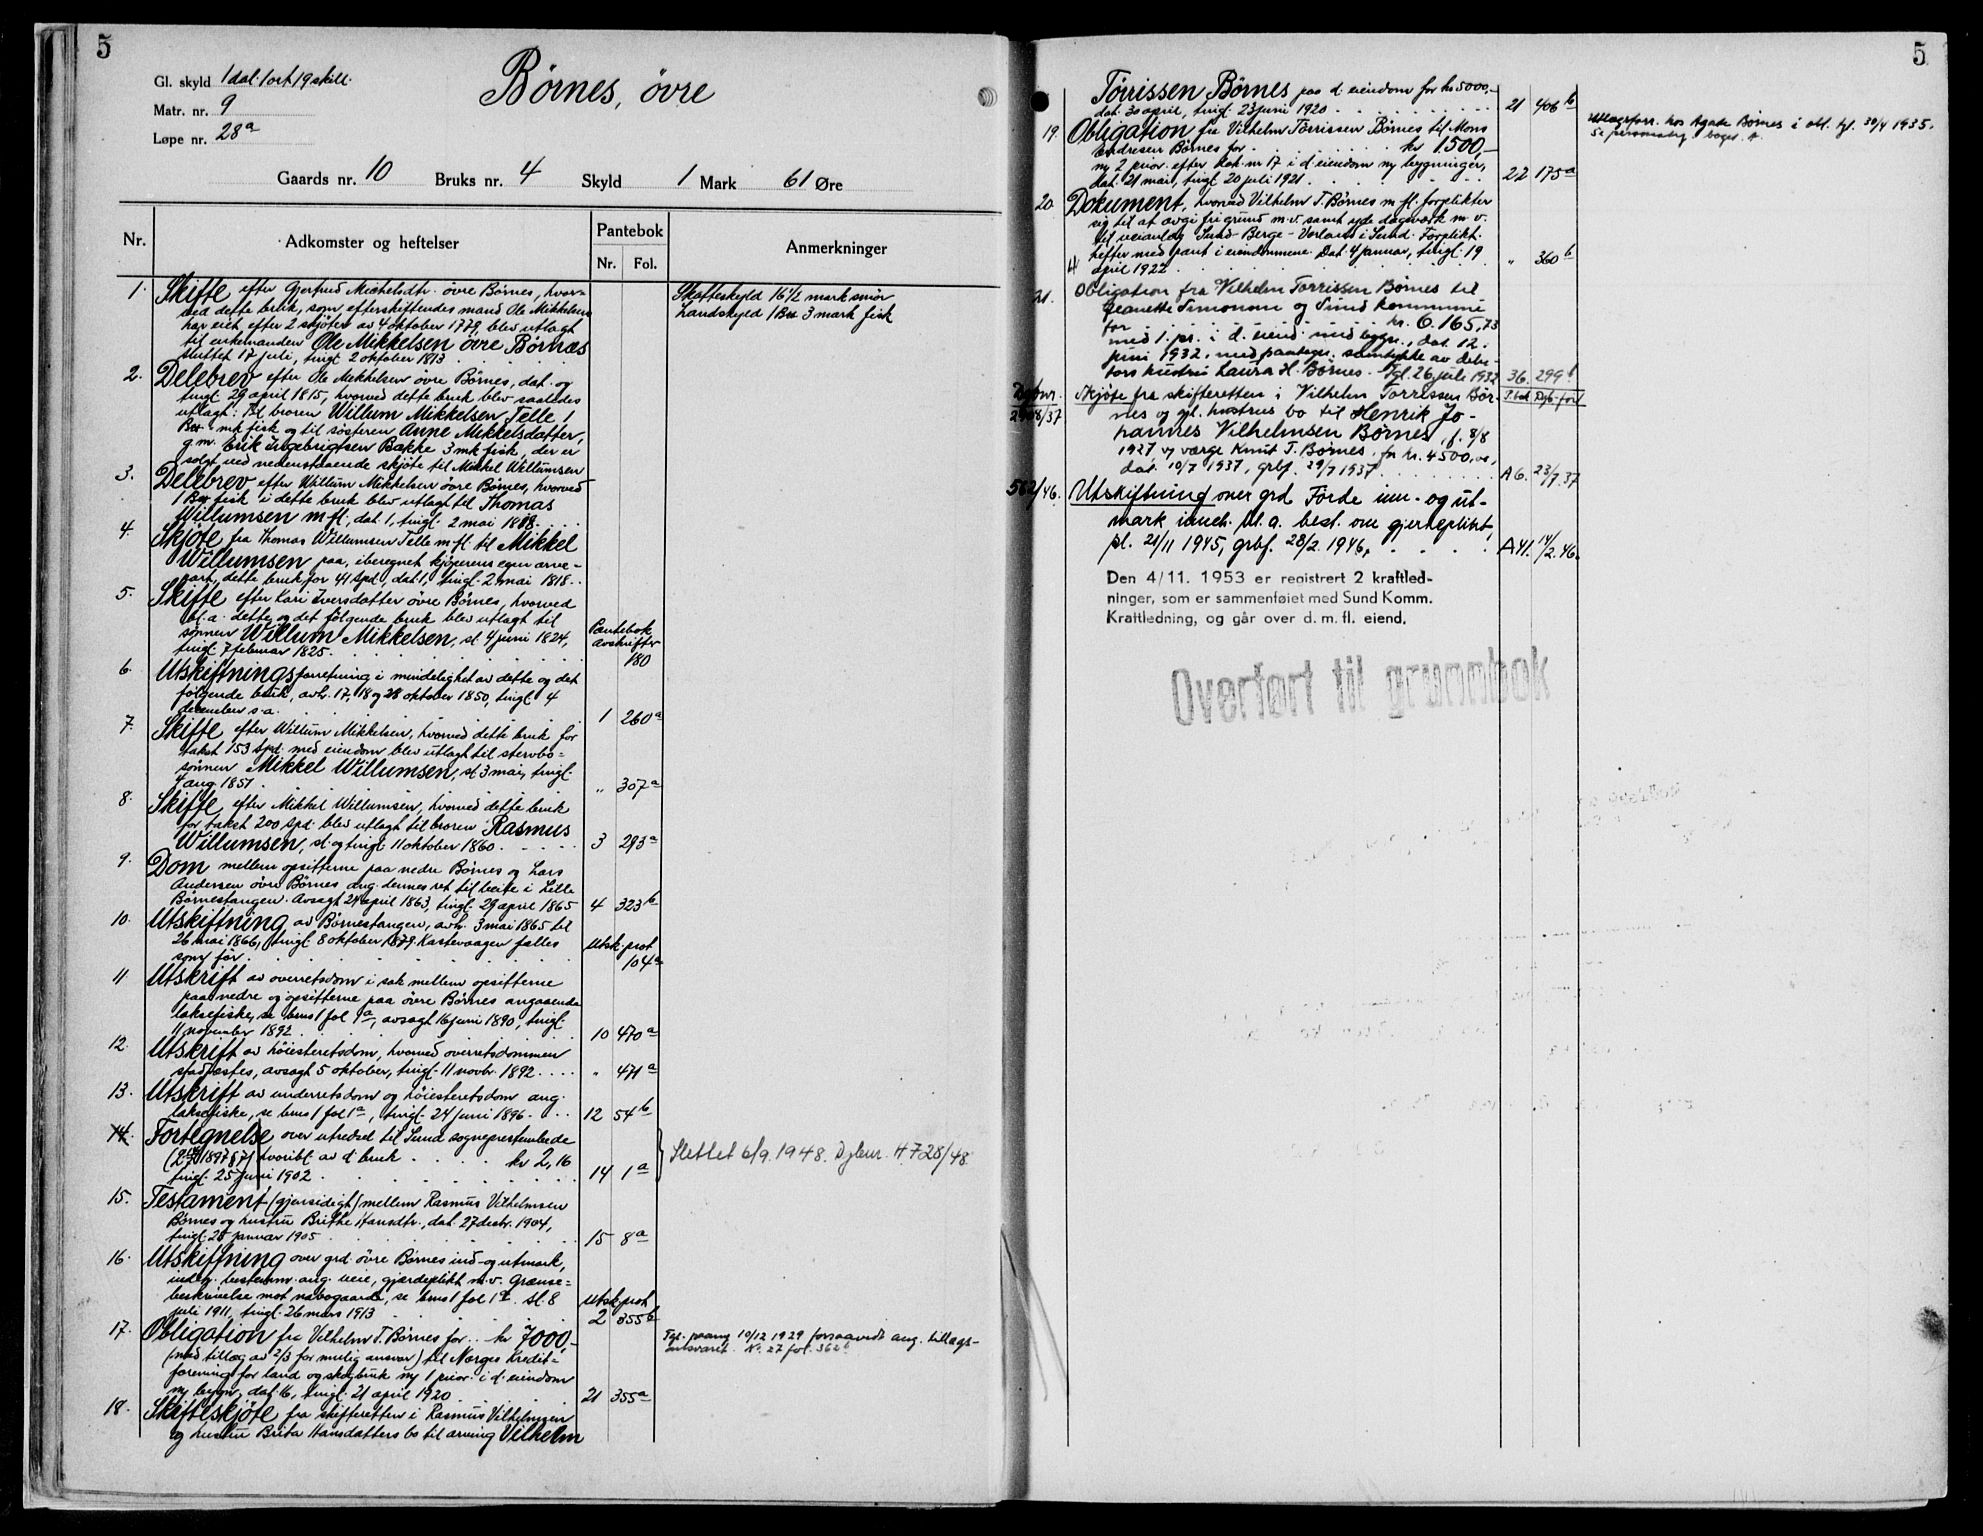 5
Gl. skyld 1 dal. 1 ort 19 skill.
Børnes, øvre
Matr. nr. 9
Løpe nr. 28a
Gaards nr. 10 Bruks nr. 4 Skyld 1 Mark 61 Øre
Nr. Adkomster og heftelser Pantebok Anmerkninger
Nr. Fol.
1. Skifte efter Gjertrud Michelsdtr. øvre Børnes, hvor= Skatteskyld 16 1/2 mark smør
ved dette bruk, som efterskiftendes mand Ole Mikkelsen Landskyld 1 Bx 3 mark fisk
har eiet efter 2 skjøter av 4 oktober 1779, blev utlagt
til enkemanden Ole Mikkelsen øvre Børnæs
sluttet 17 juli, tingl. 2 oktober 1813
2. Delebrev efter Ole Mikkelsen øvre Børnes, dat. og
tingl. 29 april 1815, hvorved dette bruk blev saaledes
utlagt: Til broren Willum Mikkelsen Telle 1
mk fisk og til søsteren Anne Mikkelsdatter,
g.m. Erik Ingebrigtsen Bakke 3 mk fisk, der er
solgt ved nedenstaaende skjøte til Mikkel Willumsen
3. Delebrev efter Willum Mikkelsen øvre Børnes, hvorved
1 Bx fisk i dette bruk blev utlagt til Thomas
Willumsen m fl., dat. 1, tingl. 2 mai 1818.
4. Skjøte fra Thomas Willumsen Telle m fl. til Mikkel
Willumsen paa, iberegnet kjøperens egen arve=
part, dette bruk for 44 Spd., dat. 1, tingl. 2. mai 1818.
5. Skifte efter Kari Iversdatter øvre Børnes, hvorved
bl.a. dette og det følgende bruk blev utlagt til
sønnen Willum Mikkelsen, sl. 4 juni 1824, Pantebok
tingl. 7 februar 1825. avskrifter
180
6. Utskiftningsforretning i mindelighet av dette og det
følgende bruk, avh. 17, 18 og 28 oktober 1850, tingl. 4
december s.a. 1 260a
7. Skifte efter Willum Mikkelsen, hvorved dette bruk for
takst 153 Spd. med eiendom blev utlagt til stervbo=
sønnen Mikkel Willumsen, sl. 3 mai, tingl.
4 aug. 1851. " 307a
8. Skifte efter Mikkel Willumsen, hvorved dette bruk
for takst 200 Spd. blev utlagt til broren Rasmus
Willumsen, sl. og tingl. 11 oktober 1860. 3 293a
9. Dom mellem opsitterne paa nedre Børnes og Lars
Andersen øvre Børnes ang. dennes ret til beite i Lille
Børnestangen. Avsagt 24 april 1863, tingl. 29 april 1865 4 323b
10. Utskiftning av Børnestangen, avh. 3 mai 1865 til
26 mai 1866, tingl. 8 oktober 1879. Kastevaagen fælles Utsk. prot
som før. 104a
11 Utskrift av overretsdom i sak mellem opsitterne
paa nedre og opsitterne paa øvre Børnes angaaende
laksefiske, se bnr 1 fol 1a, avsagt 16 juni 1890, tingl.
11 november 1892 10 470a
12. Utskrift av høiesteretsdom, hvorved overretsdommen
stadfæstes, avsagt 5 oktober, tingl. 11 novbr. 1892 " 471a
13. Utskrift av underretsdom og høiesteretsdom ang.
laksefiske, se bnr 1 fol 1a, tingl. 24 juni 1896. 12 54b
14. Fortegnelse over utredsel til Sund sogneprestembede
hvoribl. av d. bruk kr 2,16 Slettet 6/9. 1948. Dgbnr. 4728/48
tingl. 25 juni 1902 14 1a
15. Testament (gjensidigt) mellem Rasmus Vilhelmsen
Børnes og hustru Brithe Hansdtr., dat. 27 decbr. 1904,
tingl. 28 januar 1905 15 8a
16. Utskiftning over grd. øvre Børnes ind- og utmark,
indeh. bestemm. ang. veie, gjærdeplikt m.v. Grænse=
beskrivelse mot nabogaarde, se bnr 1 fol 1a. sl. 8 Utsk. prot
juli 1911, tingl. 26 mars 1913 2 355b
17. Obligation fra Vilhelm T. Børnes for kr 7000,– Tgl. paany 10/12 1929 forsaavidt ang. tillægs-
(med tillæg av 2/3 for mulig ansvar) til Norges Kredit= ansvaret. No. 27 fol. 362b
forening for land og skogbruk m 1 prior. i d. eiendom
m bygn., dat. 16, tingl. 21 april 1920 21 355a
18. Skifteskjøte fra skifteretten i Rasmus Vilhelmsen
og hustru Brita Hansdatters bo til arving Vilhelm
5
Tørrissen Børnes paa d. eiendom for kr 5000,–
dat. 30 april, tingl. 23 juni 1920 21 406b
19. Obligation fra Vilhelm Tørrissen Børnes til Mons Utlægsforr. hos Agate Børnes i obl. tgl. 30/4 1935.
Endresen Børnes for kr 1500,– Se personalreg. bogst. A.
m 2 prior. efter dok. nr 17 i d. eiendom m bygninger,
dat. 21 mai, tingl. 20 juli 1921 22 175a
20. Dokument, hvorved Vilhelm T. Børnes m fl. forplikter
sig til at avgi fri grund m.v. samt yde dagsverk m v.
til veianlæg Sund-Berge-Vorland i Sund. Forplikt.
hefter med pant i eiendommene. Dat. 4 januar, tingl. 19
april 1922 " 360b
21. Obligation fra Vilhelm Tørrissen Børnes til
Jeanette Simonsen og Sund kommune
for kr. 6.165,73
med 1. pr. i d. eiend. med bygn., dat. 12.
juni 1932, med panteger. samtykke av debi-
tors hustru Laura H. Børnes. Tgl. 26 juli 1932 36. 299b
Dgbnr. Skjøte fra skifteretten i Vilhelm Torrissen Bør-
2908/37 nes og gjl. hustrus bo til Henrik Jo-
hannes Vilhelmsen Børnes, f. 8/8
1927, v/ verge Knut T. Børnes, for kr. 4500,00,
dat. 10/7 1937, grbf. 29/7 1937. A 6. 23/7. 37
562/46. Utskiftning over grd. Förde inn- og ut-
mark inneh. bl. a. best. om gjerdeplikt,
sl. 21/11 1945, grbf. 28/2. 1946. A 41. 14/2. 46.
Den 4/11. 1953 er registrert 2 kraftled-
ninger, som er sammenføiet med Sund Komm.
Kraftledning, og går over d. m. fl. eiend.
Overført til grunnbok